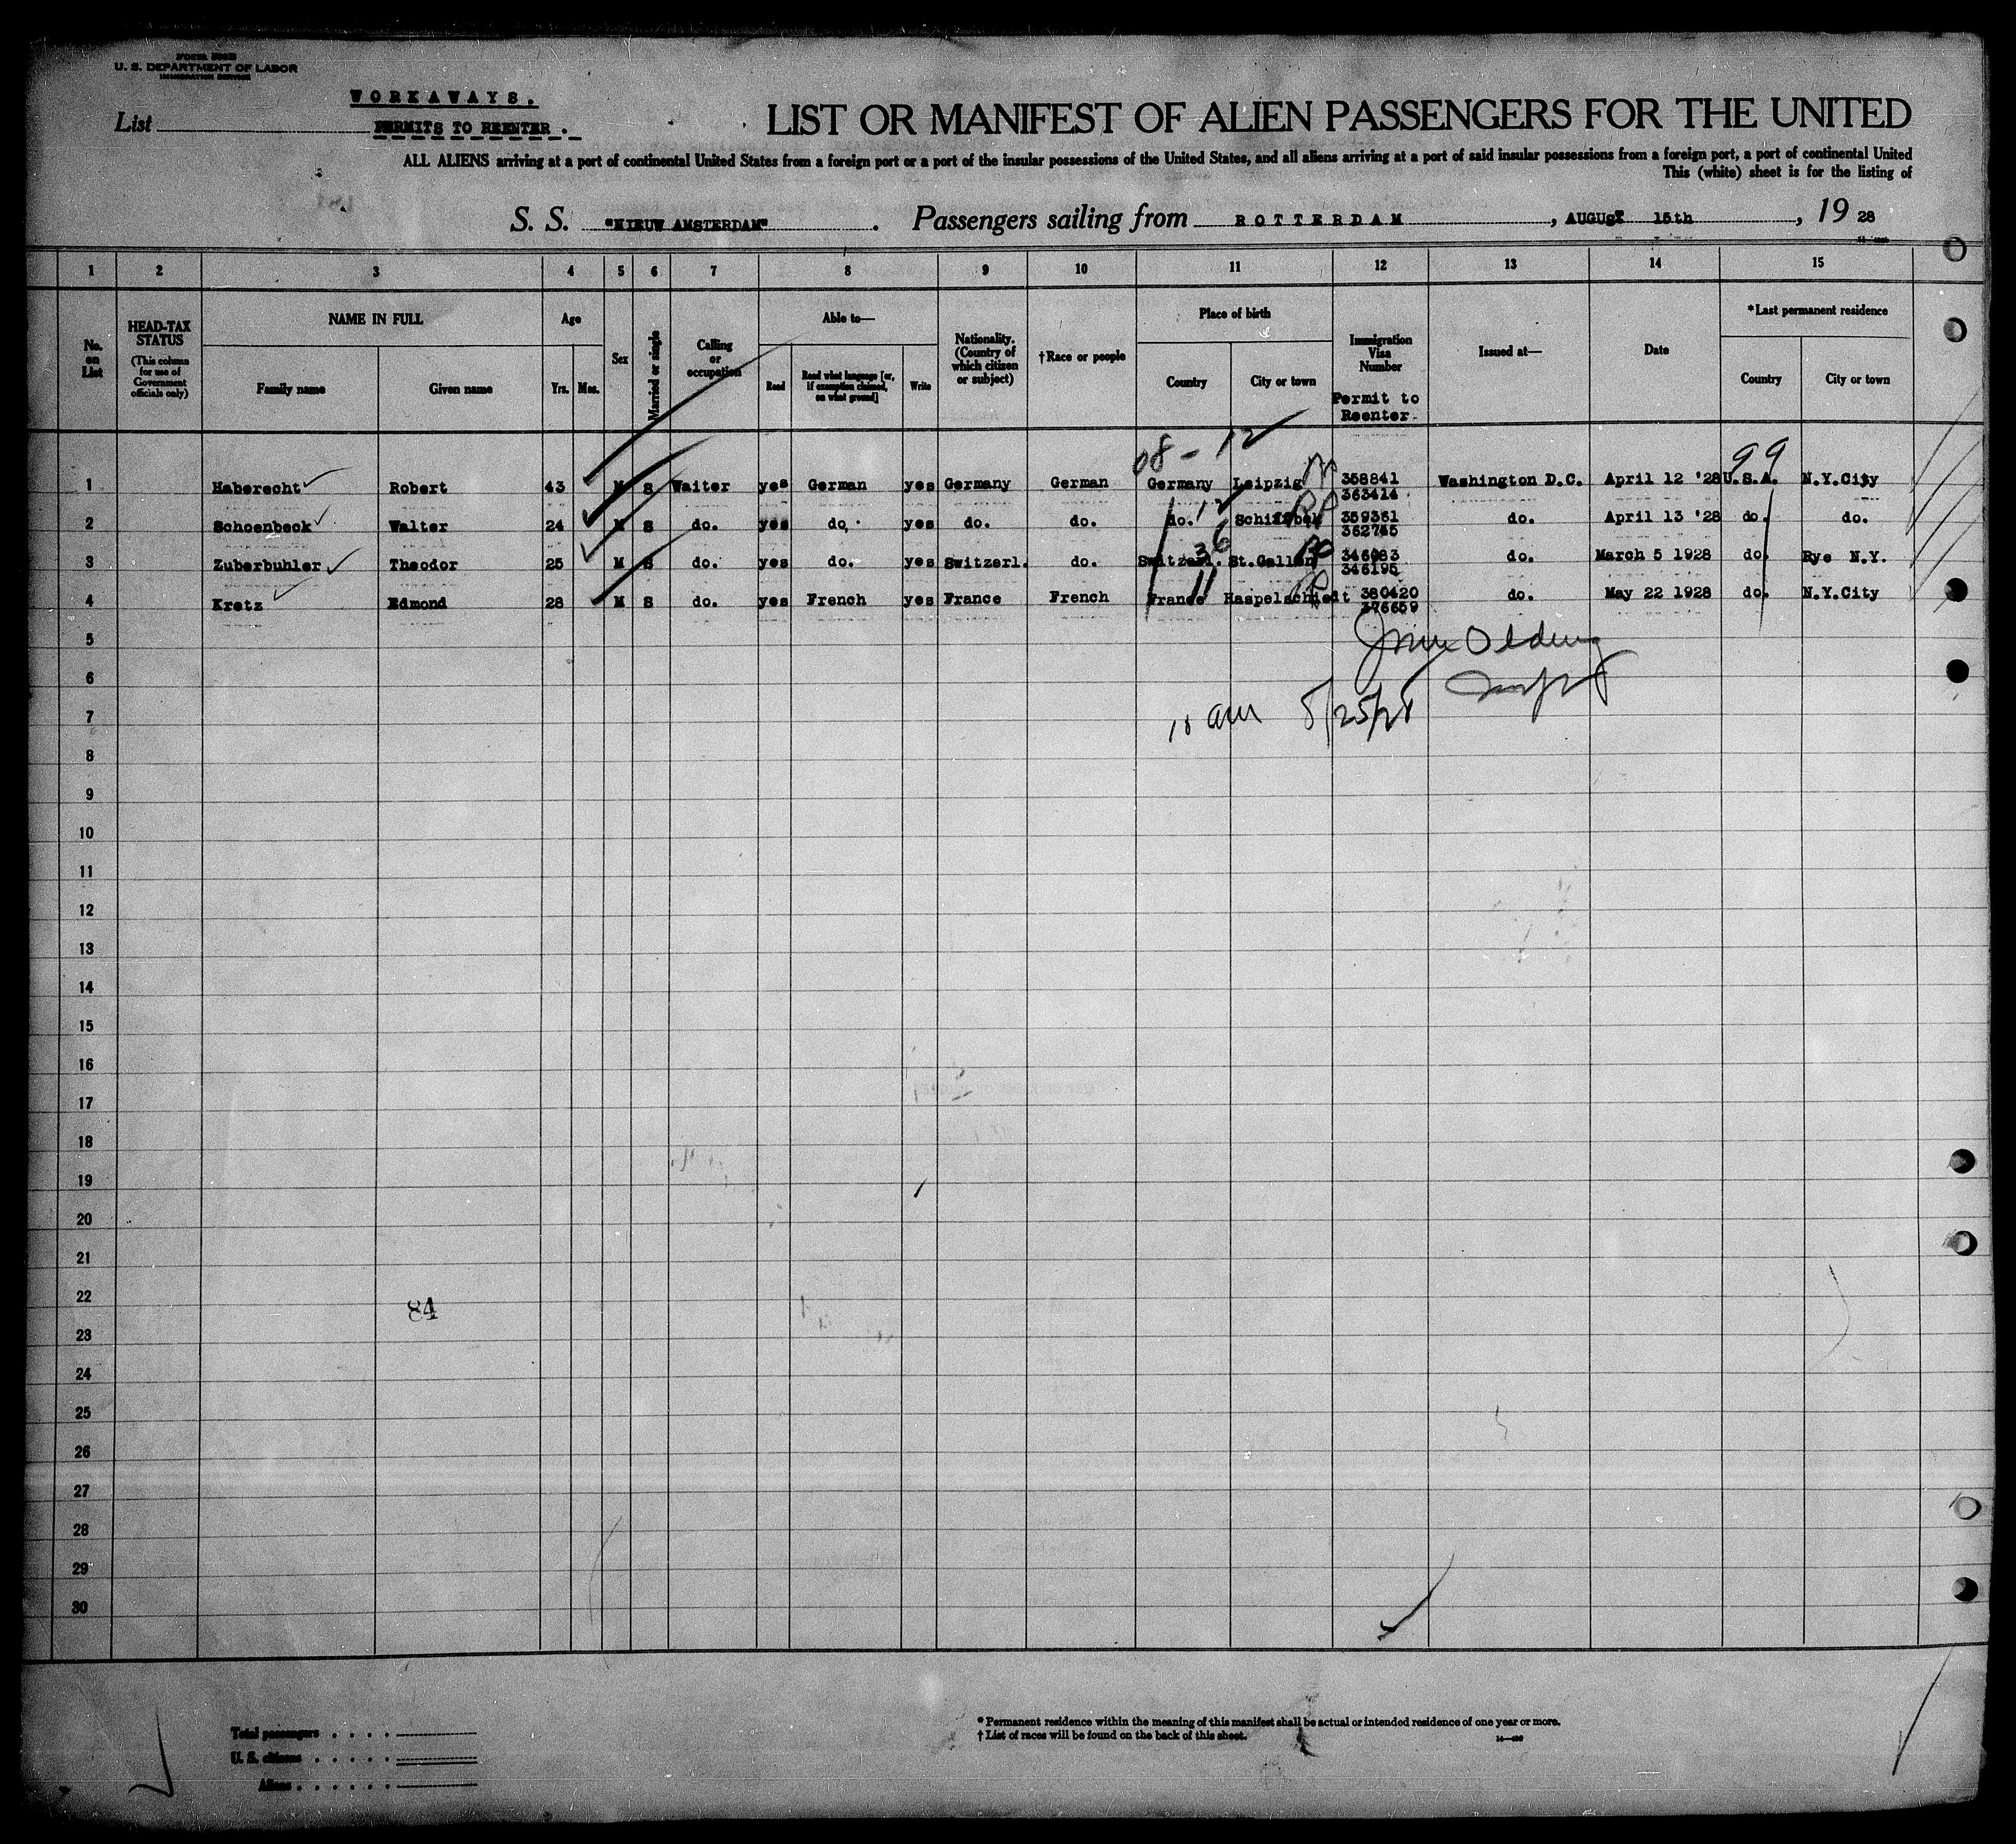 U. S. DEPARTMENT OF LABOR
IMMIGRATION SERVICE
WORKAWAYS.
List PERMITS TO REENTER.
LIST OR MANIFEST OF ALIEN PASSENGERS FOR THE UNITED
ALL ALIENS arriving at a port of continental United States from a foreign port or a port of the insular possessions of the United States, and all aliens arriving at a port of said insular possessions from a foreign port, a port of continental United
This (white) sheet is for the listing of
S. S. "NIEUW AMSTERDAM". Passengers sailing from ROTTERDAM, AUGUST 15th, 19 28
1 2 3 4 5 6 7 8 9 10 11 12 13 14 15
No. on List
HEAD-TAX STATUS (This column for use of Government officials only)
NAME IN FULL
Family name Given name
Age
Yrs. Mos.
Sex
Married or single
Calling or occupation
Able to—
Read Read what language [or, if exemption claimed, on what ground] Write
Nationality. (Country of which citizen or subject)
†Race or people
Place of birth
Country City or town
Immigration Visa Number
Permit to Reenter
Issued at—
Date
*Last permanent residence
Country City or town
08 - 12
99
1 Haberecht Robert 43 M S Waiter yes German yes Germany German Germany Leipzig 358841 Washington D.C. April 12 '28 U.S.A. N.Y.City
363414
2 Schoenbeck Walter 24 M S do. yes do. yes do. do. do. 12 359361 do. April 13 '28 do. do.
362765
3 Zuberbuhler Theodor 25 M S do. yes do. yes Switzerl. do. Switzerl. 36 St.Gallen 346083 do. March 5 1928 do. Rye N.Y.
346195
4 Kretz Edmond 28 M S do. yes French yes France French France 11 Haspelschiedt 380420 do. May 22 1928 do. N.Y.City
376659
5
6
7 am 8/25/28
8
9
10
11
12
13
14
15
16
17
18
19
20
21
22 84
23
24
25
26
27
28
29
30
Total passengers
U. S. citizens
Aliens
* Permanent residence within the meaning of this manifest shall be actual or intended residence of one year or more.
† List of races will be found on the back of this sheet.